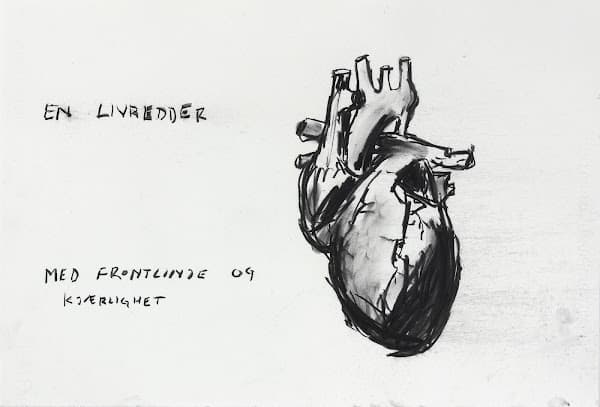 EN LIVREDDER
MED FRONTLINJE OG
KJÆRLIGHET